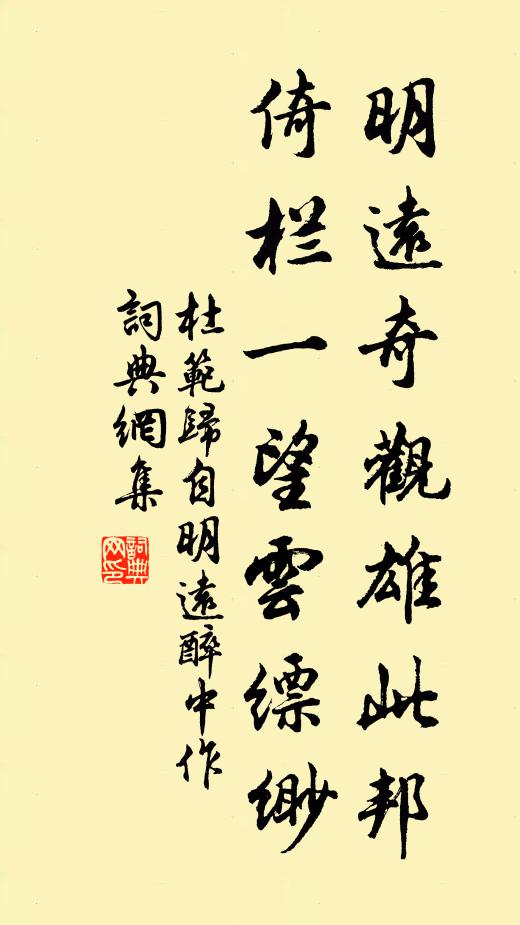 明遠奇觀雄此邦
倚栏一望雲缥缈
杜範歸自明遠醉中作
詞典網集
詞典
网印